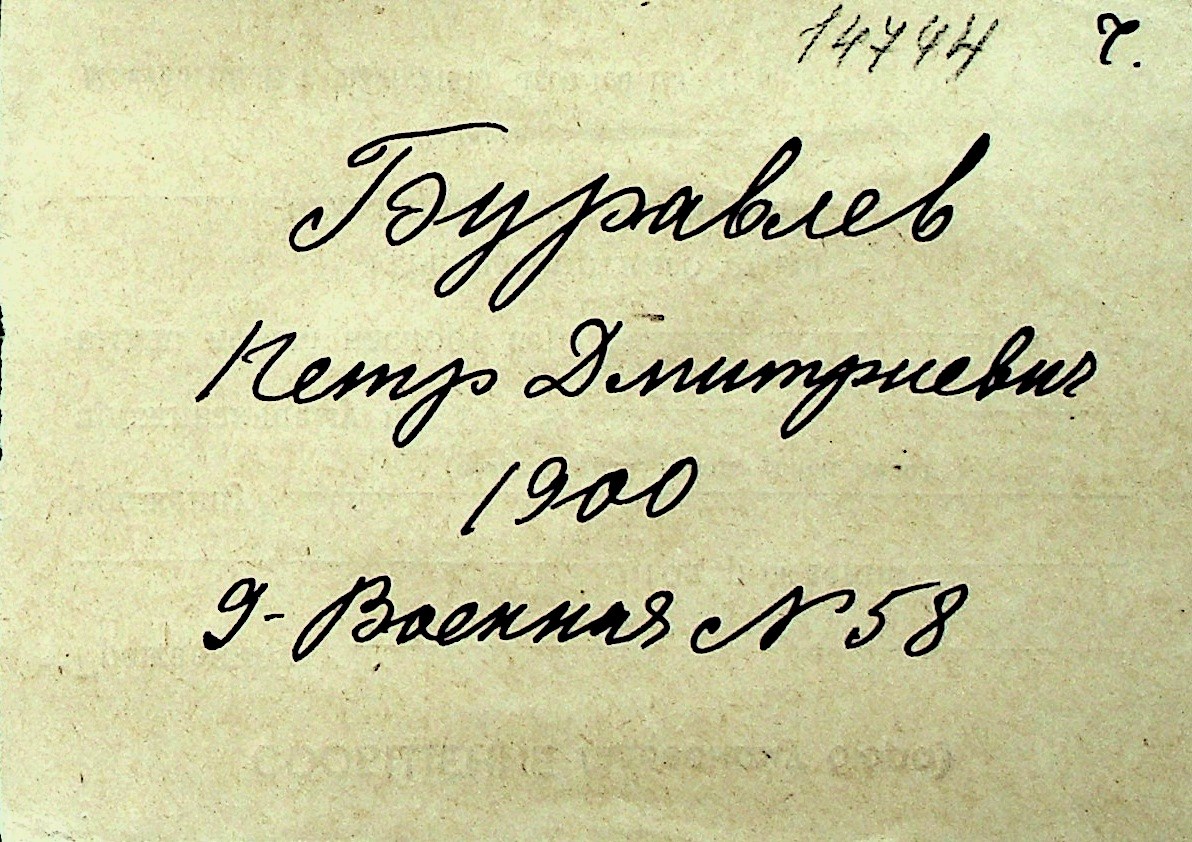 14744 Г.
Буравлев
Петр Дмитриевич
1900
9-Военная N 58